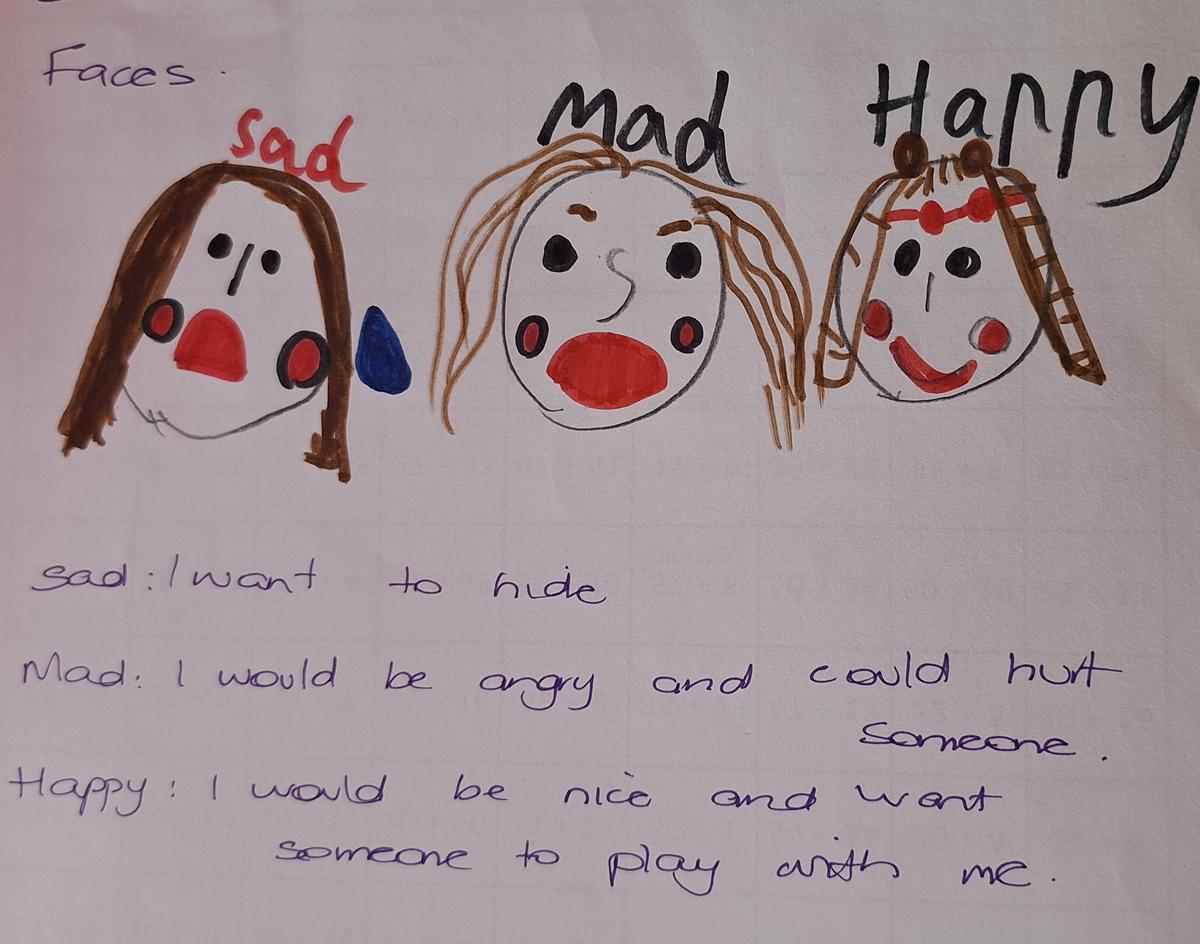 Faces.
sad Mad Happy
sad: I want to hide
Mad: I would be angry and could hurt
someone.
Happy: I would be nice and want
someone to play with me.